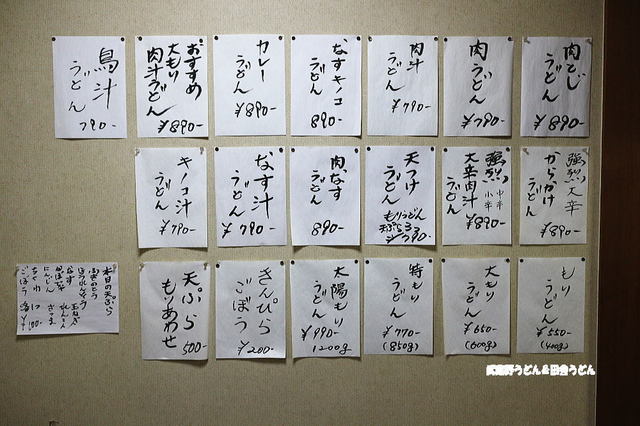 肉とじ
うどん
¥890-
肉うどん
¥790-
肉汁
うどん
¥790-
なすキノコ
うどん
890-
カレー
うどん
¥890-
おすすめ
大もり
肉汁うどん
¥890-
鳥汁
うどん
790-
強烈 大辛
からかけ
うどん
¥890-
強烈
中辛
小辛
大辛肉汁
うどん
¥890-
天つけ
うどん
もりうどん
天ぷら
¥790-
肉なす
うどん
890-
なす汁
うどん
¥790-
キノコ汁
うどん
¥790-
もり
うどん
¥550-
(400g)
大もり
うどん
¥650-
(600g)
特もり
うどん
¥770-
(850g)
太陽もり
うどん
¥990-
1200g
きんぴら
ごぼう
¥200-
天ぷら
もりあわせ
500-
本日の天ぷら
ほうれんそう
なす 玉ねぎ
かぼちゃ れんこん
にんじん さつま
ちくわ
ごぼう
¥100-
武蔵野うどん&田舎うどん